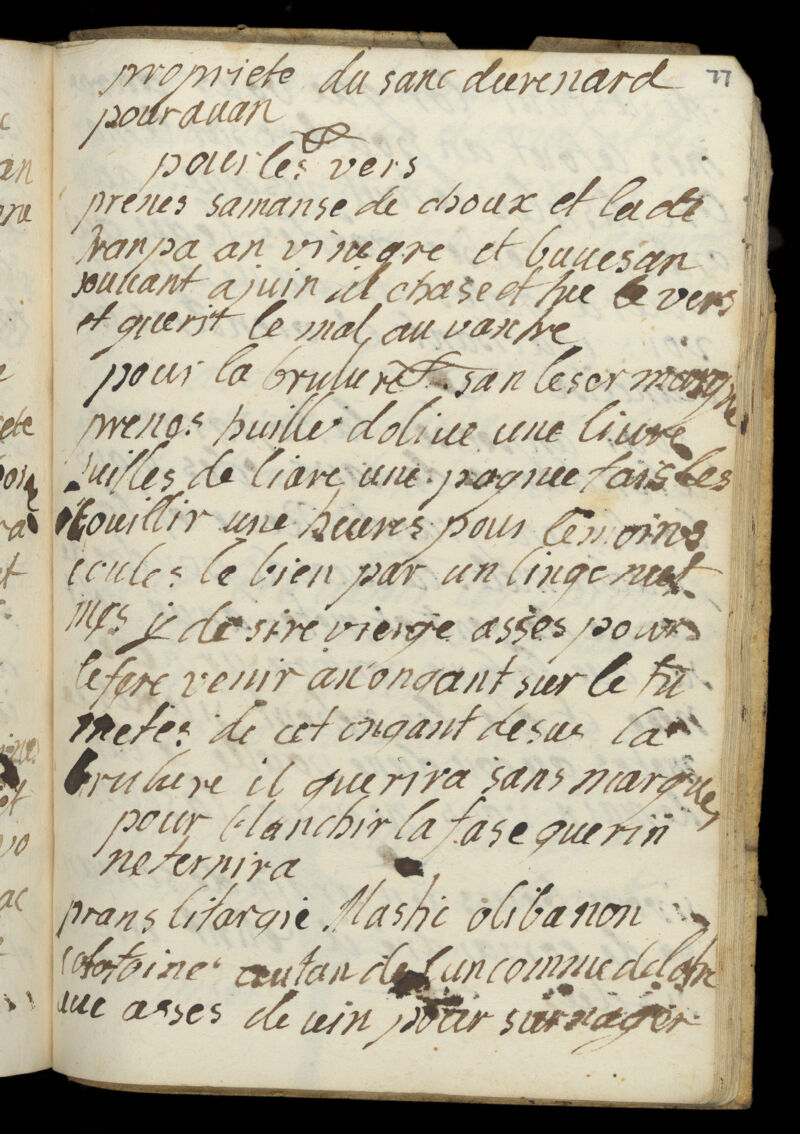 77
propriete du sanc du renard
pour auan
pour les vers
prenes samanse de choux et la de
tranpa an vinegre et buues an
souuant a juin il chase et tue le vers
et querit le mal au vantre
pour la brulure san leser marque
prenes huille doliue une liure
uilles de liare une pognie fais les
bouillir une heures pour le moins
coules le bien par un linge nuet
mes y de sire vierge asses pour
le fere venir an ongant sur le fu
metes de cet ongant desus la
brulure il querira sans marques
pour blanchir la fase
ne ternira
prans litargie Mastic olibanon
autan de lun comme de lotre
aue asses de uin pour surnager